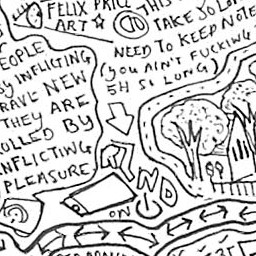 FELIX PRICE
ART
THIS
TAKE SO LO
NEED TO KEEP NOTE
(YOU AIN'T FUCKING
SO LONG)
EOPLE
BY INFLICTING
RAVE NEW
THEY ARE
ROLLED BY
NFLICTING
PLEASURE
WIND
ON